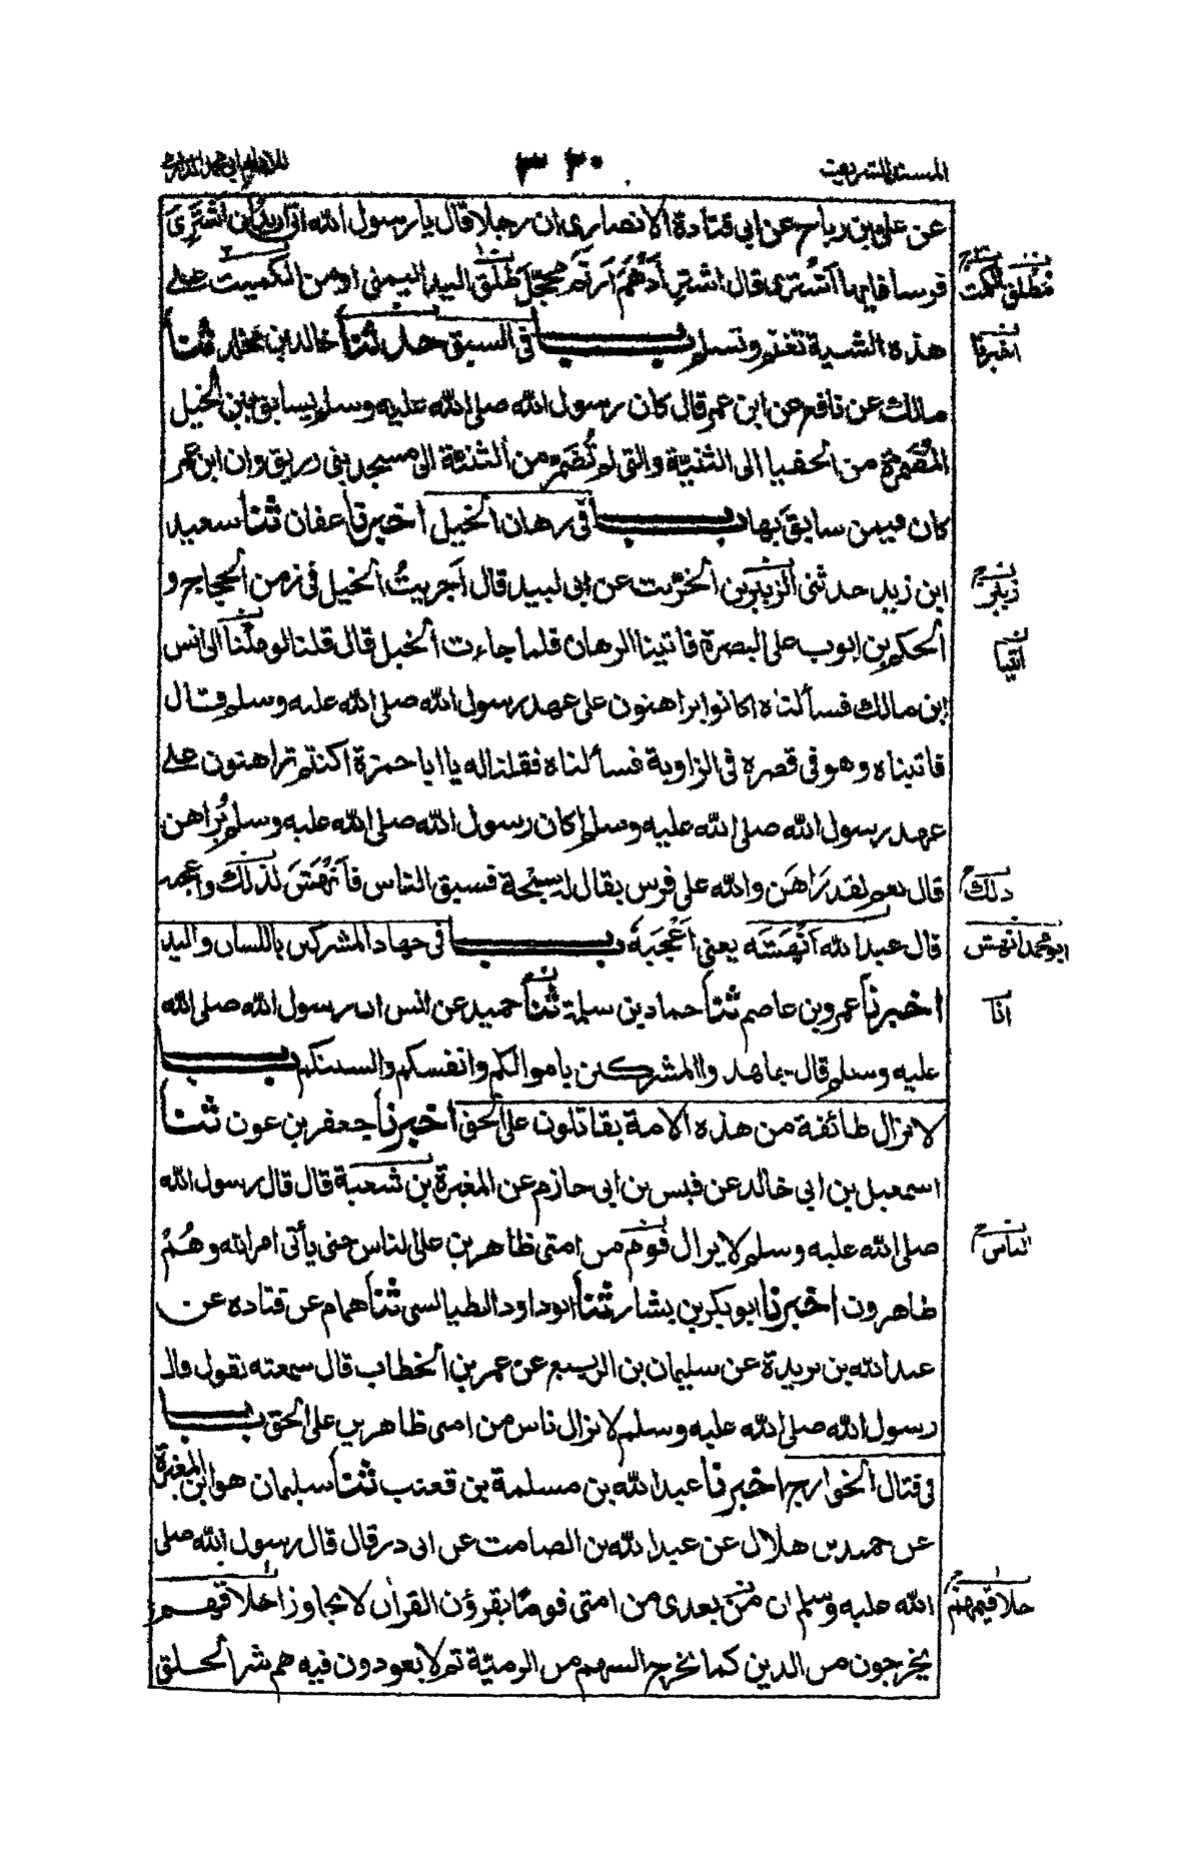 المسند الشريف ٣٢٠ للامام ابي محمد الدارمي
عن علي بن رباح عن ابي قتادة الانصاري ان رجلا قال يا رسول الله اني اريد ان اَشتَرِىَ
فرسا فايها اَشْتَرِى قال اشترِ اَدْهَمَ اَرثَمَ مُحجّل طَلْقَ اليد اليمنى او من الكميت على
مُطلق الكمت
هذه الشية تغنم وتسلم باب في السبق حدثنا خالد بن مخلد ثنا
اخبرنا
مالك عن نافع عن ابن عمر قال كان رسول الله صلى الله عليه وسلم يسابق بين الخيل
المُضَمَّرة من الحفيا الى الثنيّة والتي لم تُضَمَّر من الثنيّة الى مسجد بني زريق وان ابن عمر
كان فيمن سابق بها باب في رهان الخيل اخبرنا عفان ثنا سعيد
ابن زيد حدثني الزبير بن الخرّيت عن ابي لبيد قال اَجريتُ الخيل في زمن الحجاج و
زبير
الحكم بن ايوب على البصرة فاتينا الرهان فلما جاءت الخيل قال قلنا لو ملنا الى انس
اتينا
ابن مالك فسألناه اكانوا يراهنون على عهد رسول الله صلى الله عليه وسلم قال
فاتيناه وهو في قصره في الزاوية فسألناه فقلنا له يا ابا حمزة اكنتم تراهنون على
عهد رسول الله صلى الله عليه وسلم اكان رسول الله صلى الله عليه وسلم يُراهن
قال نعم لقد رَاهَن والله على فرس يقال له سبْحة فسبق الناس فاَنْهَشَ لذلك واعجبه
ذلك
قال عبد الله اَنْهَشَه يعني اَعْجَبَهُ باب في جهاد المشركين باللسان واليد
ابو محمد انهش
اخبرنا عمرو بن عاصم ثنا حماد بن سلمة ثنا حميد عن انس ان رسول الله صلى الله
انا
عليه وسلم قال جاهدوا المشركين باموالكم وانفسكم والسنتكم باب
لا تزال طائفة من هذه الامة يقاتلون على الحق اخبرنا جعفر بن عون ثنا
اسمعيل بن ابي خالد عن قيس بن ابي حازم عن المغيرة بن شعبة قال قال رسول الله
صلى الله عليه وسلم لا يزال قوم من امتي ظاهرين على الناس حتى يأتي امر الله وهُمْ
الناس
ظاهرون اخبرنا ابو بكر بن بشار ثنا ابو داود الطيالسي ثنا همام عن قتادة عن
عبد الله بن بريدة عن سليمان بن الربيع عن عمر بن الخطاب قال سمعته يقول قال
رسول الله صلى الله عليه وسلم لا يزال ناس من امتي ظاهرين على الحق باب
في قتال الخوارج اخبرنا عبد الله بن مسلمة بن قعنب ثنا سليمان هو ابن المغيرة
عن حميد بن هلال عن عبد الله بن الصامت عن ابي ذر قال قال رسول الله صلى
الله عليه وسلم ان من بعدي من امتي قومًا يقرؤن القراٰن لا يجاوز اخلاقيهم
حلاقيمهم
يخرجون من الدين كما يخرج السهم من الرميّة ثم لا يعودون فيه هم شر الخلق